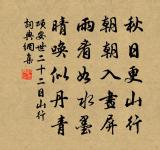 秋日更山行
朝朝入畫屏
雨看如水墨
晴喚似丹青
項安世二十二日山行
詞典網集